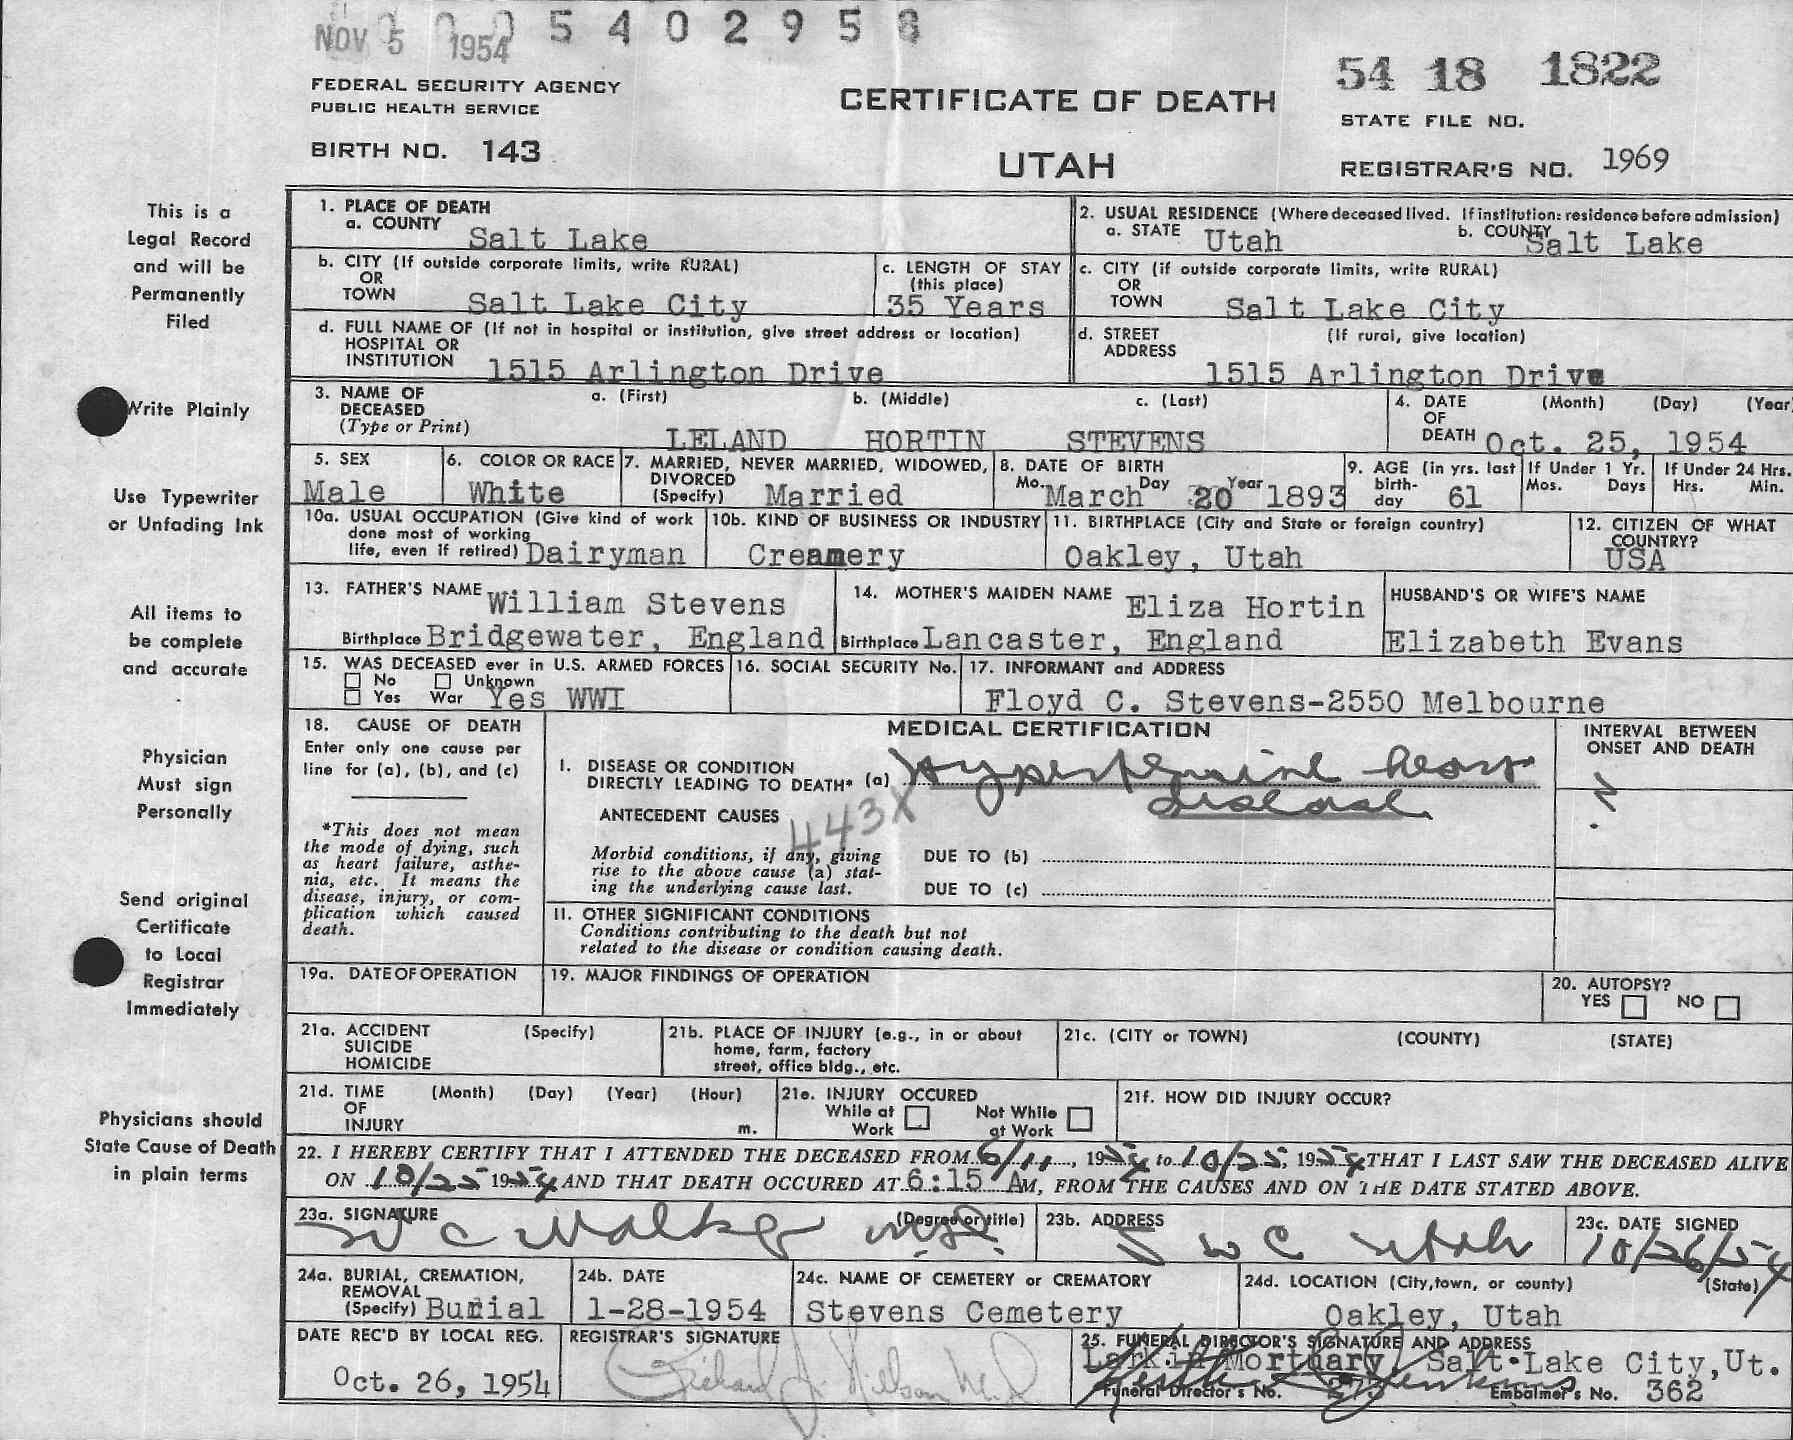 NOV 5 1954
5 4 0 2 9 5 8
54 18 1822
FEDERAL SECURITY AGENCY
PUBLIC HEALTH SERVICE
CERTIFICATE OF DEATH
STATE FILE NO.
BIRTH NO. 143
UTAH
REGISTRAR'S NO. 1969
This is a
Legal Record
and will be
Permanently
Filed
Write Plainly
Use Typewriter
or Unfading Ink
All items to
be complete
and accurate
Physician
Must sign
Personally
Send original
Certificate
to Local
Registrar
Immediately
Physicians should
State Cause of Death
in plain terms
1. PLACE OF DEATH
a. COUNTY Salt Lake
2. USUAL RESIDENCE (Where deceased lived. If institution: residence before admission)
a. STATE Utah b. COUNTY Salt Lake
b. CITY (If outside corporate limits, write RURAL)
OR
TOWN Salt Lake City
c. LENGTH OF STAY
(this place)
35 Years
c. CITY (if outside corporate limits, write RURAL)
OR
TOWN Salt Lake City
d. FULL NAME OF (If not in hospital or institution, give street address or location)
HOSPITAL OR
INSTITUTION 1515 Arlington Drive
d. STREET (If rural, give location)
ADDRESS
1515 Arlington Drive
3. NAME OF a. (First) b. (Middle) c. (Last)
DECEASED
(Type or Print)
LELAND HORTIN STEVENS
4. DATE (Month) (Day) (Year
OF
DEATH Oct. 25, 1954
5. SEX
Male
6. COLOR OR RACE
White
7. MARRIED, NEVER MARRIED, WIDOWED,
DIVORCED
(Specify) Married
8. DATE OF BIRTH
Mo. Day Year
March 20 1893
9. AGE (in yrs. last
birth-
day 61
If Under 1 Yr.
Mos. Days
If Under 24 Hrs.
Hrs. Min.
10a. USUAL OCCUPATION (Give kind of work
done most of working
life, even if retired) Dairyman
10b. KIND OF BUSINESS OR INDUSTRY
Creamery
11. BIRTHPLACE (City and State or foreign country)
Oakley, Utah
12. CITIZEN OF WHAT
COUNTRY?
USA
13. FATHER'S NAME William Stevens
Birthplace Bridgewater, England
14. MOTHER'S MAIDEN NAME Eliza Hortin
Birthplace Lancaster, England
HUSBAND'S OR WIFE'S NAME
Elizabeth Evans
15. WAS DECEASED ever in U.S. ARMED FORCES
No Unknown
Yes War Yes WWI
16. SOCIAL SECURITY No.
17. INFORMANT and ADDRESS
Floyd C. Stevens-2550 Melbourne
18. CAUSE OF DEATH
Enter only one cause per
line for (a), (b), and (c)
*This does not mean
the mode of dying, such
as heart failure, asthe-
nia, etc. It means the
disease, injury, or com-
plication which caused
death.
MEDICAL CERTIFICATION
INTERVAL BETWEEN
ONSET AND DEATH
I. DISEASE OR CONDITION
DIRECTLY LEADING TO DEATH* (a) Hypertensive heart
disease
ANTECEDENT CAUSES
443X
Morbid conditions, if any, giving
rise to the above cause (a) stat-
ing the underlying cause last.
DUE TO (b)
DUE TO (c)
II. OTHER SIGNIFICANT CONDITIONS
Conditions contributing to the death but not
related to the disease or condition causing death.
19a. DATE OF OPERATION
19. MAJOR FINDINGS OF OPERATION
20. AUTOPSY?
YES NO
21a. ACCIDENT (Specify)
SUICIDE
HOMICIDE
21b. PLACE OF INJURY (e.g., in or about
home, farm, factory
street, office bldg., etc.
21c. (CITY or TOWN) (COUNTY) (STATE)
21d. TIME (Month) (Day) (Year) (Hour)
OF
INJURY m.
21e. INJURY OCCURED
While at Work Not While at Work
21f. HOW DID INJURY OCCUR?
22. I HEREBY CERTIFY THAT I ATTENDED THE DECEASED FROM 6/11, 1954 to 10/25, 1954 THAT I LAST SAW THE DECEASED ALIVE
ON 10/25 1954 AND THAT DEATH OCCURED AT 6:15 AM, FROM THE CAUSES AND ON THE DATE STATED ABOVE.
23a. SIGNATURE (Degree or title)
W C Walker M.D.
23b. ADDRESS
S L C Utah
23c. DATE SIGNED
10/26/54
24a. BURIAL, CREMATION,
REMOVAL
(Specify) Burial
24b. DATE
1-28-1954
24c. NAME OF CEMETERY or CREMATORY
Stevens Cemetery
24d. LOCATION (City, town, or county) (State)
Oakley, Utah
DATE REC'D BY LOCAL REG.
Oct. 26, 1954
REGISTRAR'S SIGNATURE
Richard J. Nelson M.D.
25. FUNERAL DIRECTOR'S SIGNATURE AND ADDRESS
Larkin Mortuary, Salt Lake City, Ut.
Funeral Director's No. Embalmer's No. 362